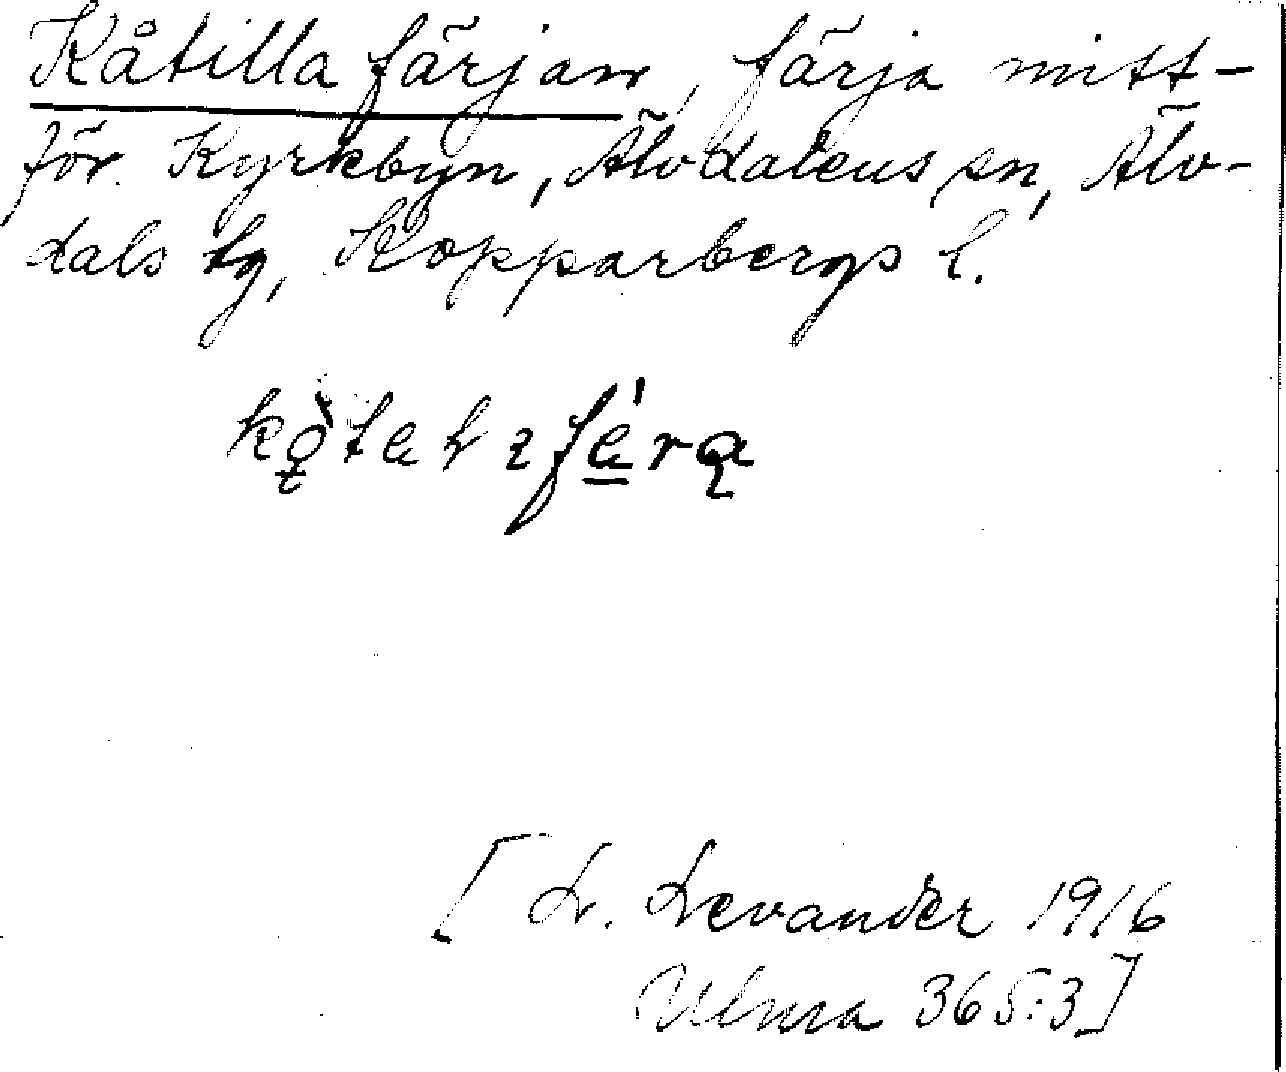 Kåtilla färjan, färja mitt-
för Kyrkbyn, Älvdalens sn, Älv-
dals tg, Kopparbergs l.
[L. Levander 1916
Ulma 365:3]